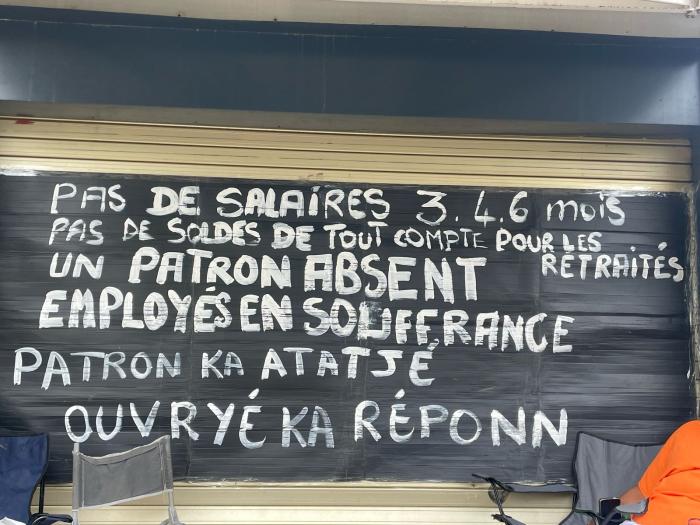 PAS DE SALAIRES 3.4.6 mois
PAS DE SOLDES DE TOUT COMPTE POUR LES RETRAITÉS
UN PATRON ABSENT
EMPLOYÉS EN SOUFFRANCE
PATRON KA ATATJÉ
OUVRYÉ KA RÉPONN